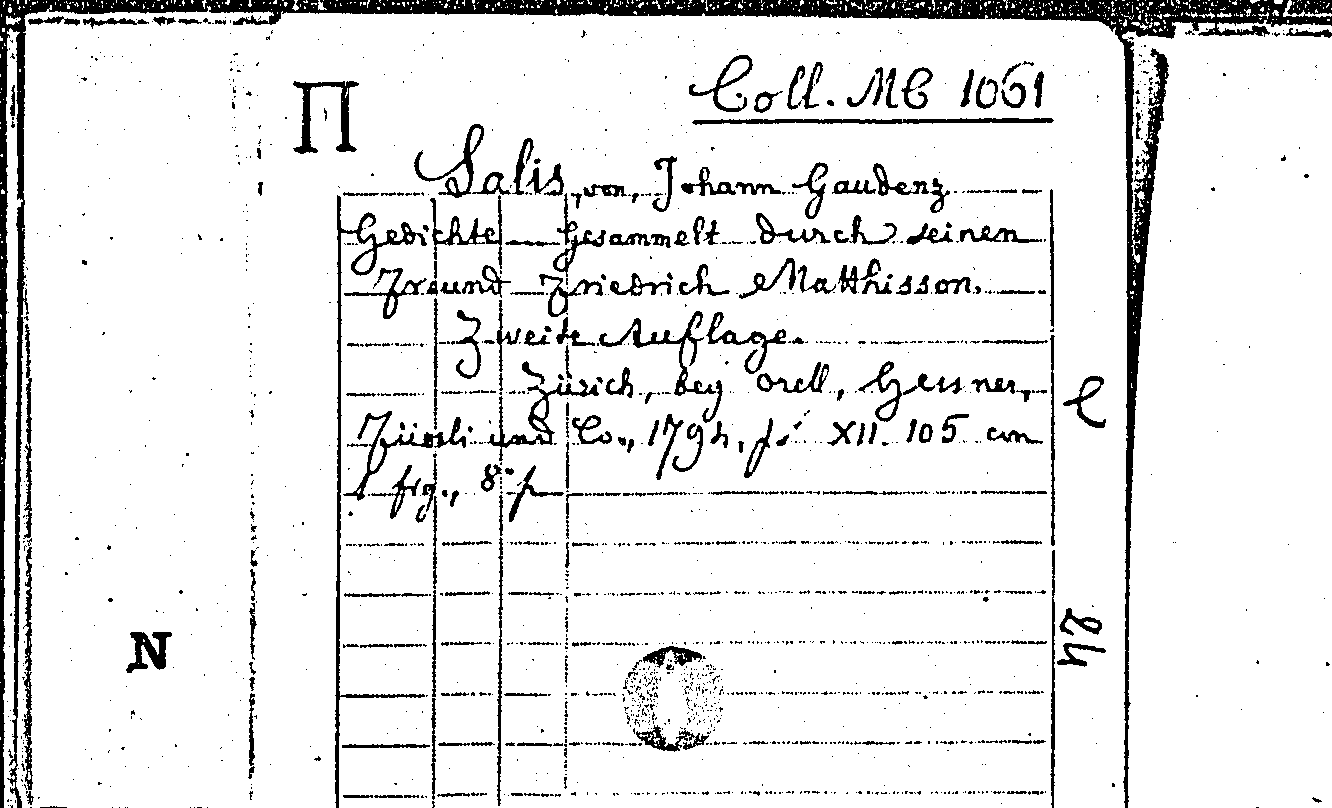 Coll. MC 1061
Π
Salis, von, Johann Gaudenz
Gedichte Gesammelt durch seinen
Freund Friedrich Matthisson.
Zweite Auflage.
Zürich, bey Orell, Gessner,
Füssli und Co., 1794, XII. 105 cm
1 frg., 8° p
N